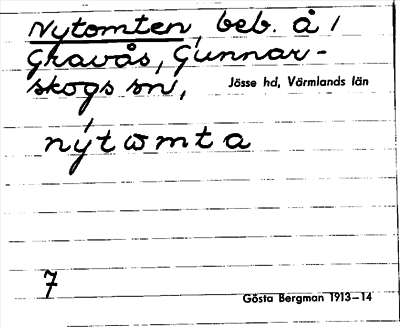 Nytomten, beb. å 1
Gravås, Gunnar-
skogs sn, Jösse hd, Värmlands län
nýtωmta
7
Gösta Bergman 1913–14